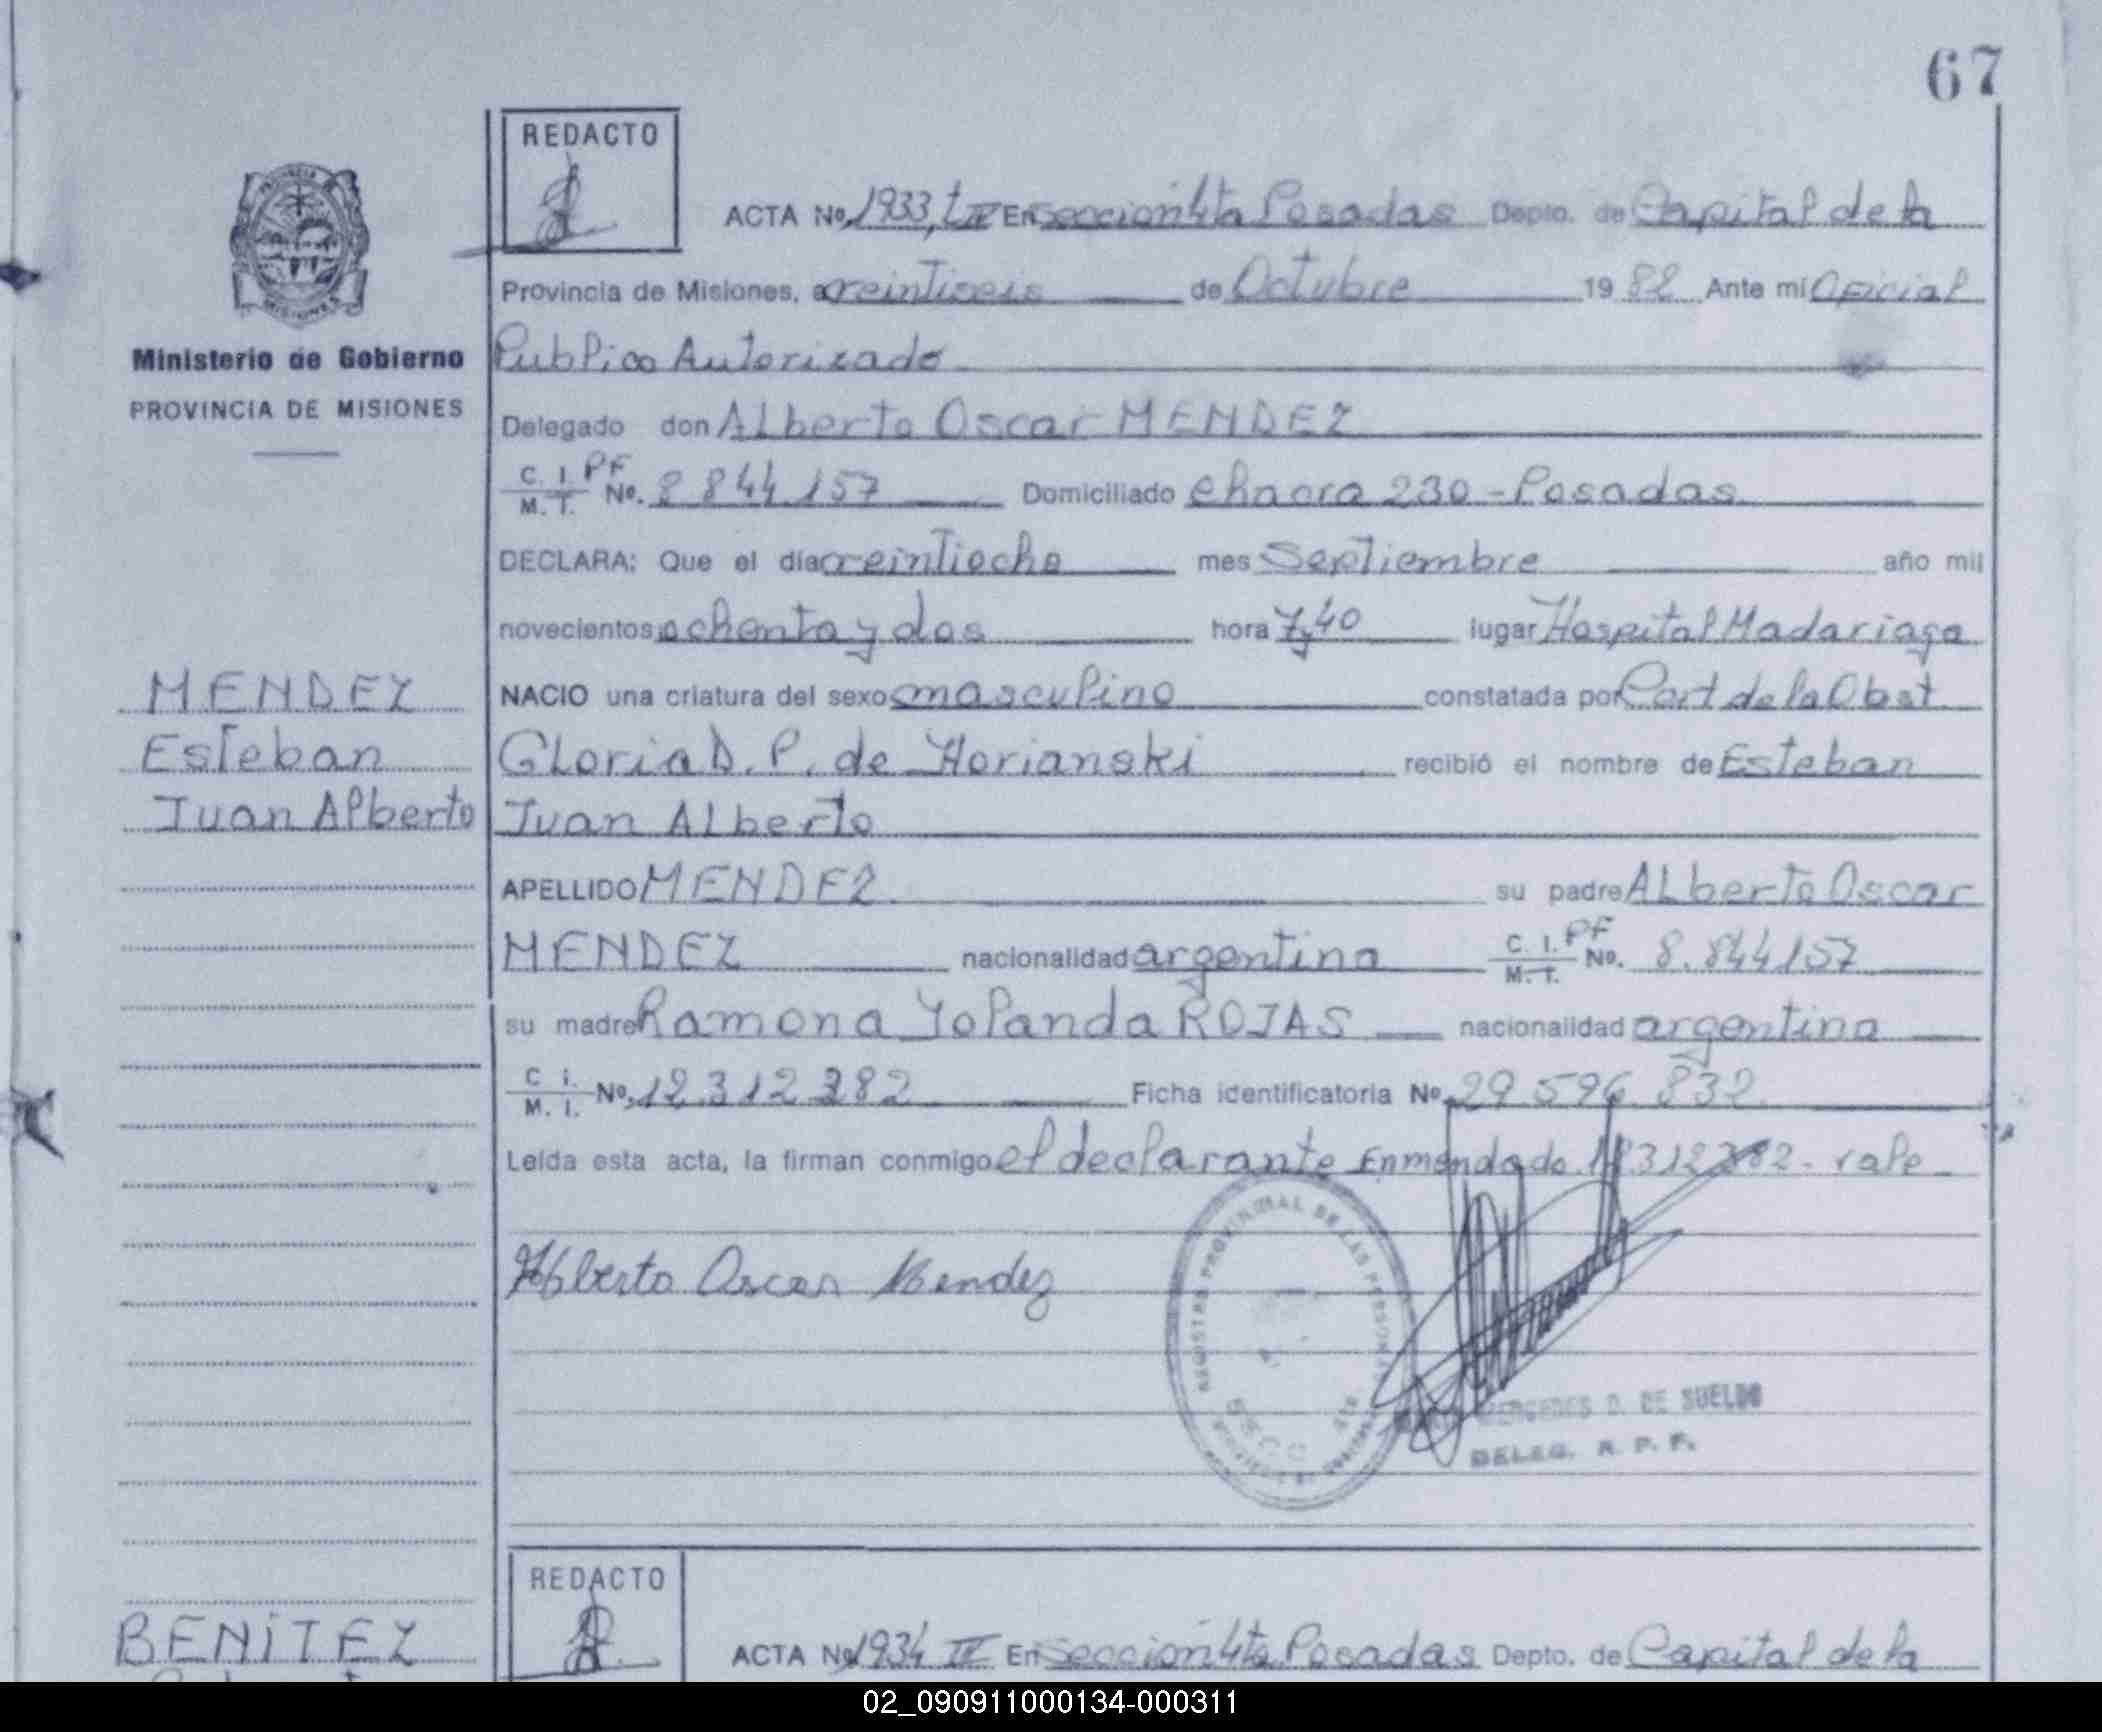 67
REDACTO
ACTA No. 1933, t IV En seccion 4ta Posadas Depto. de Capital de la
Provincia de Misiones, a veintiseis de Octubre 19 82 Ante mi Oficial
Ministerio de Gobierno
PROVINCIA DE MISIONES
Publico Autorizado
Delegado don Alberto Oscar MENDEZ
C. I. PF
M. T. No. 8844157 Domiciliado Chacra 230 - Posadas
DECLARA: Que el día veintiocho mes Septiembre año mil
novecientos ochenta y dos hora 7,40 lugar Hospital Madariaga
MENDEZ
Esteban
Juan Alberto
NACIO una criatura del sexo masculino constatada por Cert de la Obst
Gloria D. P. de Horianski recibió el nombre de Esteban
Juan Alberto
APELLIDO MENDEZ su padre Alberto Oscar
MENDEZ nacionalidad argentina C. I. PF M. T. No. 8.844157
su madre Ramona Yolanda ROJAS nacionalidad argentina
C. I. M. I. No. 12.312.282 Ficha identificatoria No. 29.596.832
Leída esta acta, la firman conmigo el declarante Enmendado 12312282 - vale
Alberto Oscar Mendez
REGISTRO PROVINCIAL DE LAS PERSONAS
MERCEDES D. DE SUELDO
DELEG. R. P. P.
REDACTO
BENITEZ
ACTA No 1934 IV En seccion 4ta Posadas Depto. de Capital de la
02_090911000134-000311